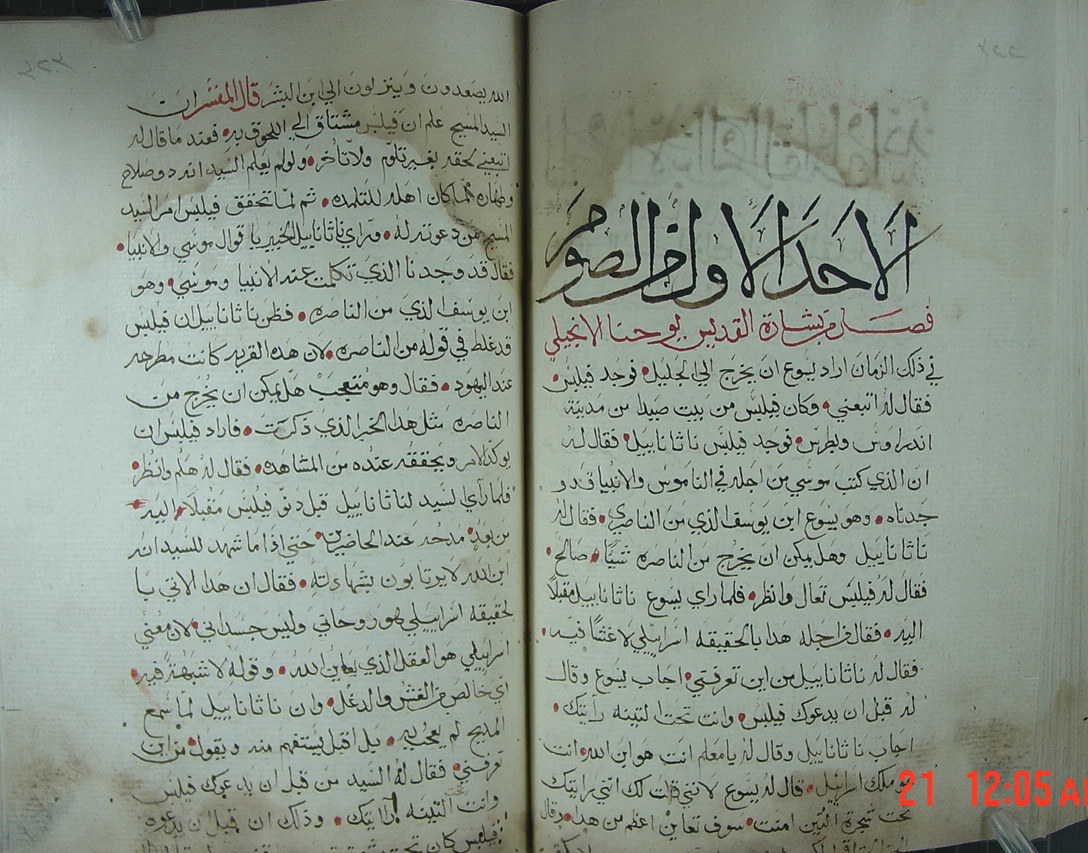 الاحد الاول من الصوم
فصل من بشارة القديس يوحنا الانجيلي
في ذلك الزمان اراد يسوع ان يخرج الي الجليل فوجد فيلبس
فقال له اتبعني وكان فيلبس من بيت صيدا من مدينة
اندراوس وبطرس فوجد فيلبس ناثاناييل فقال له
ان الذي كتب موسي من اجله في الناموس والانبيا قد و
جدناه وهو يسوع ابن يوسف الذي من الناصري فقال له
ناثاناييل وهل يمكن ان يخرج من الناصره شيًا صالح
فقال له فيلبس تعال وانظر فلما راي يسوع ناثاناييل مقبلًا
اليه فقال من اجله هذا بالحقيقه اسراييلي لا غشًا فيه
فقال له ناثاناييل من اين تعرفني اجاب يسوع وقال
له قبل ان يدعوك فيلبس وانت تحت التينه رايتك
اجاب ناثاناييل وقال له يا معلم انت هو ابن الله انت
هو ملك اسراييل قال له يسوع لانني قلت لك انني رايتك
تحت شجرة التين امنت سوف تعاين اعظم من هذا وقال
الله يصعدون وينزلون الي ابن البشر قال المفسر ان
السيد المسيح علم ان فيلبس مشتاق الي اللحوق به فعند ما قال له
اتبعني لحقه بغير تلوم ولا تاخر ولو لم يعلم السيد انه ذو صلاح
وطهاره لما كان اهله للتلمذه ثم لما تحقق فيلبس امر السيد
المسيح من دعوته له وراي ناثاناييل الخبير باقوال موسي والانبيا
فقال قد وجدنا الذي تكلمت عنه الانبيا وموسي وهو
ابن يوسف الذي من الناصره فظن ناثاناييل ان فيلبس
قد غلط في قوله من الناصره لان هذه القريه كانت مطرحه
عند اليهود فقال وهو متعجب هل يمكن ان يخرج من
الناصره مثل هذا الخبر الذي ذكرت فاراد فيلبس ان
يوكد الامر ويحققه عنده من المشاهده فقال له هلم وانظر
فلما راي السيد لناثاناييل قبل دنو فيلبس مقبلًا اليه
من بعد مدحه عند الحاضرين حتي اذا ما شهد للسيد انه
ابن الله لا يرتابون بشهادته فقال ان هذا الاتي با
لحقيقه اسراييلي فهو روحاني وليس جسداني لان معني
اسراييلي هو العقل الذي يعاين الله وقوله لا شبهة فيه
اي خالص من الغش والدغل وان ناثاناييل لما سمع
المديح لم يعجب به بل اقبل يستفهم منه ويقول من اين
تعرفني فقال له السيد من قبل ان يدعوك فيلبس
وانت التينه رايتك وذلك ان قبل ان يدعوه
فيلبس كان تحت